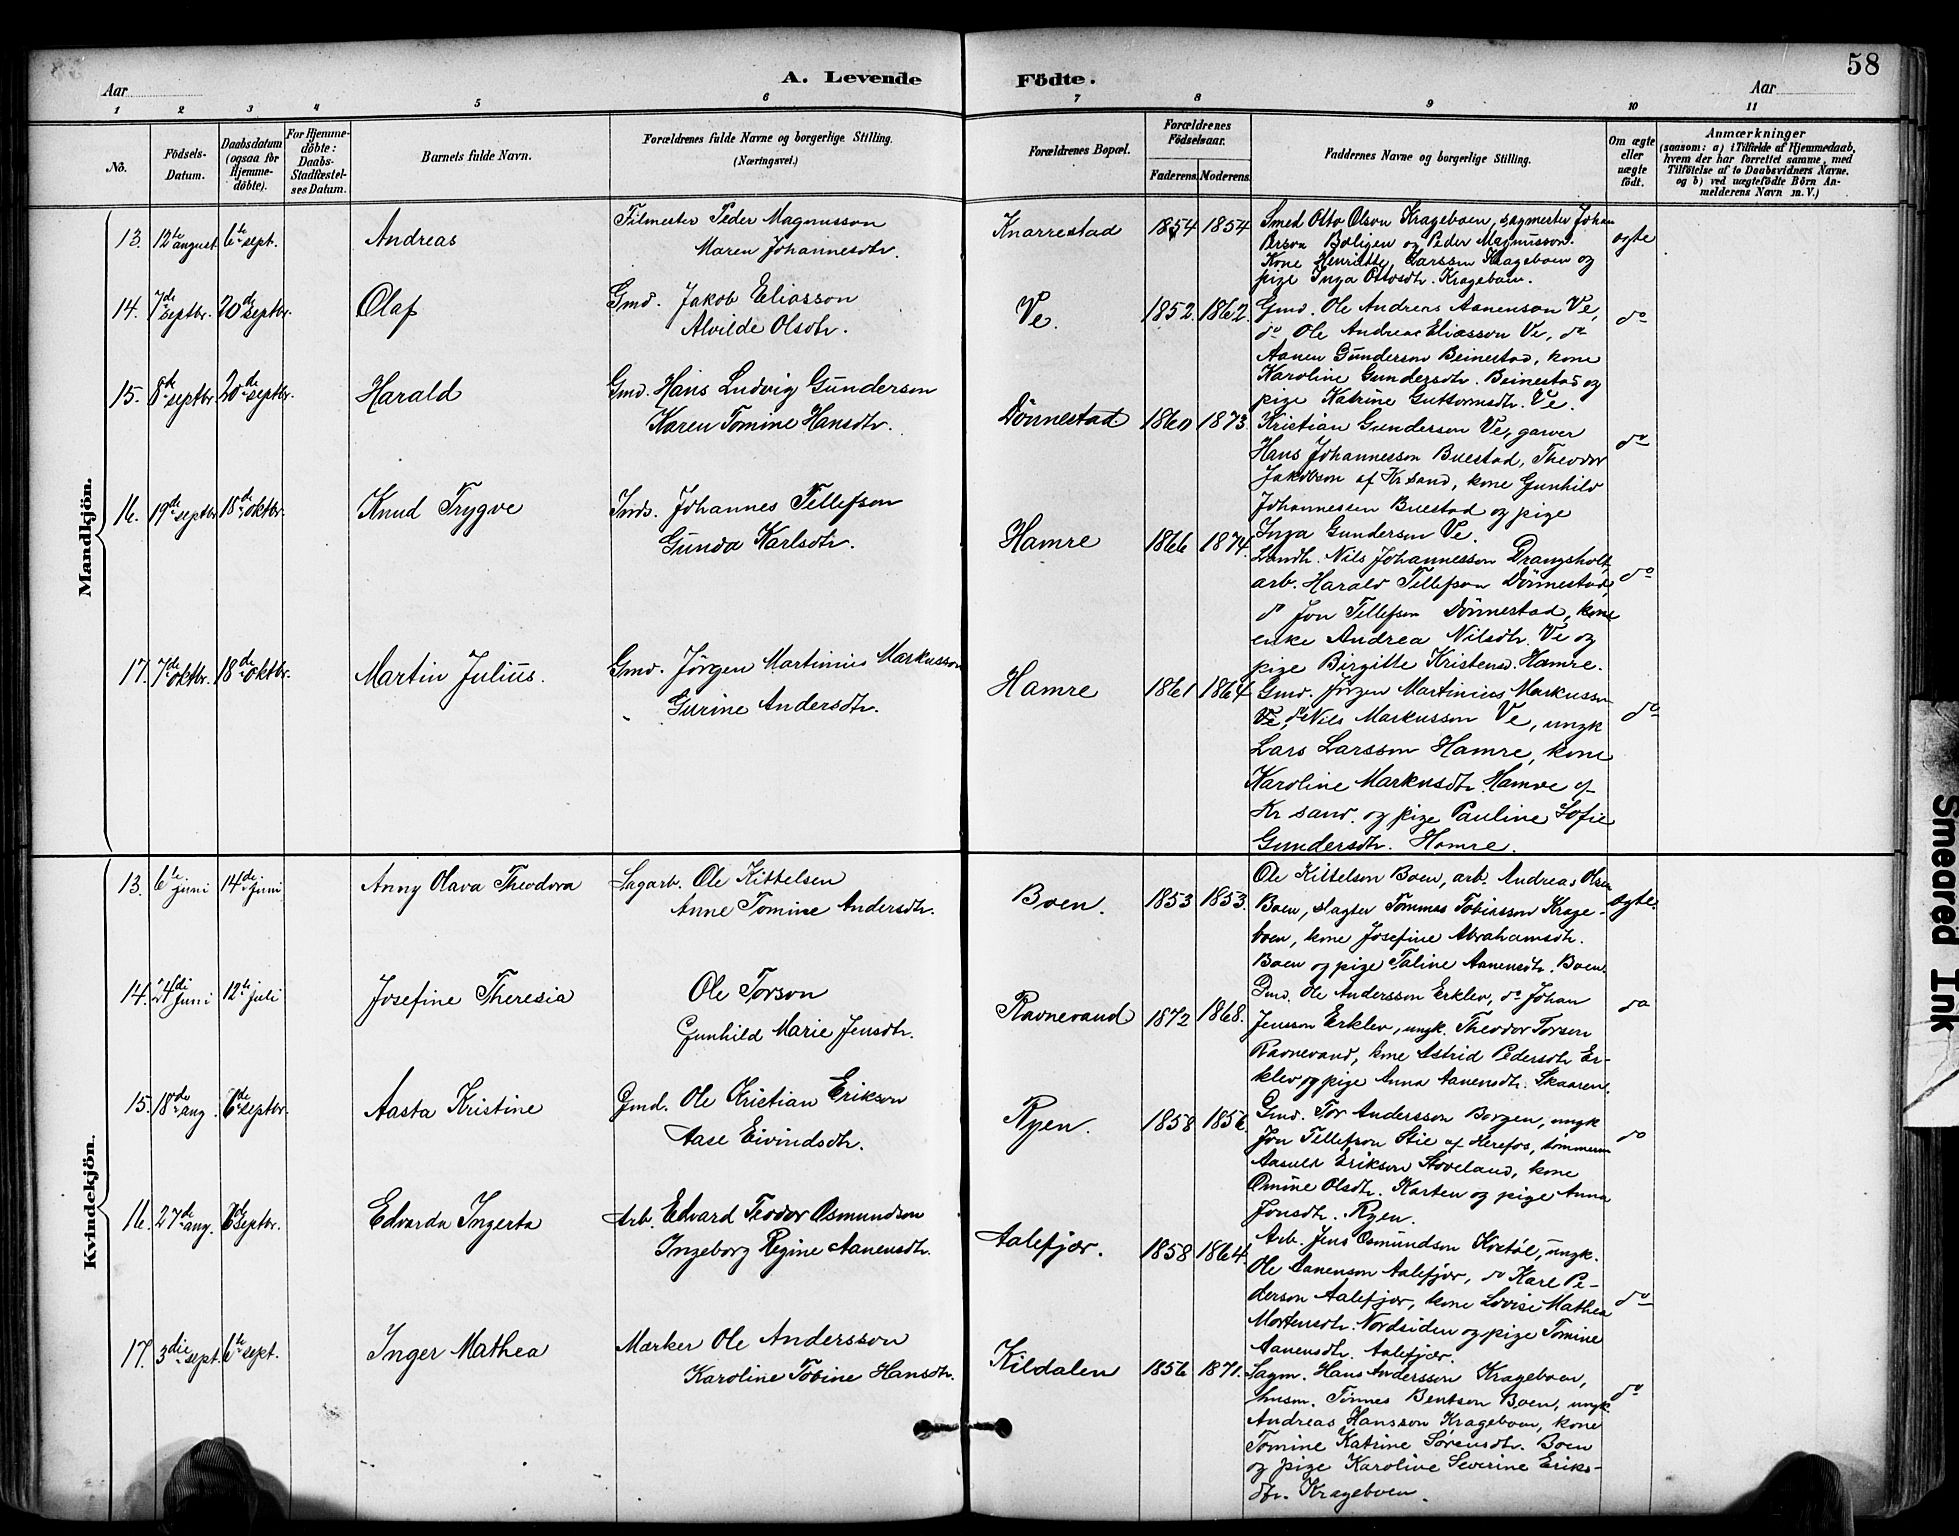 58
A. Levende Födte.
Aar
Aar
1 2 3 4 5 6 7 8 9 10 11
No.
Födsels-Datum.
Daabsdatum (ogsaa for Hjemmedöbte).
For Hjemmedöbte: Daabs-Stadfæstelses Datum.
Barnets fulde Navn.
Forældrenes fulde Navne og borgerlige Stilling.
(Næringsvei.)
Forældrenes Bopæl.
Forældrenes Födselsaar.
Faderens. Moderens.
Faddernes Navne og borgerlige Stilling.
Om ægte eller uægte födt.
Anmærkninger
(saasom: a) i Tilfælde af Hjemmedaab, hvem der har forrettet samme, med Tilföielse af to Daabsvidners Navne, og b) ved uægtefödte Börn Anmelderens Navn m. V.)
Mandkjön.
13. 12te august 6te sept. Andreas
Tilmester Peder Magnusson
Maren Johannesdtr.
Knarrestad 1854 1854
Smed Otto Olson Krageboen, sagmester Johan
Person Boligen og Peder Magnusson.
Kone Henriette Larssen Krageboen og
pige Inga Ottosdtr. Krageboen.
ægte
14. 7de septbr. 20de septbr. Olaf
Gmd. Jakob Eliasson
Alvilde Olsdtr.
Ve. 1852. 1862.
Gmd. Ole Andreas Aanenson Ve,
do Ole Andreas Eliasson Ve, do
Aanen Gunderson Beinestad, kone
Karoline Gundersdtr. Beinestad og
pige Katrine Guttormsdtr. Ve.
do
15. 8de septbr. 20de septbr. Harald
Gmd. Hans Ludvig Gunderson
Karen Tomine Hansdtr.
Dönnestad. 1860 1873.
Kristian Gunderson Ve, garver
Hans Johannesson Buestad, Theodor
Jakobson af Kr.sand, kone Gunhild
Johannessen Buestad og pige
Inga Gunderson Ve.
do
16. 19de septbr 18de oktbr. Knud Trygve
Inds. Johannes Tellefson
Gunda Karlsdtr.
Hamre 1866 1874.
Landh. Nils Johannesson Drangsholt,
arb. Harald Tellefson Dönnestad,
do Jon Tellefson Dönnestad, kone
enke Andrea Nilsdtr. Ve og
pige Birgitte Kristensd. Hamre.
do
17. 7de oktbr. 18de oktbr. Martin Julius.
Gmd. Jörgen Martinius Markusson
Gurine Andersdtr.
Hamre 1861 1864
Gmd. Jörgen Martinius Markusson
Ve, do Nils Markusson Ve, ungk
Lars Larsson Hamre, kone
Karoline Markusdtr. Hamre af
Kr.sand. og pige Pauline Sofie
Gundersdtr. Hamre.
do
Kvindekjön.
13. 6te juni 14de juni Anny Olava Theodora
Sagarb. Ole Kittelsen
Anne Tomine Andersdtr.
Boen. 1853 1853.
Ole Kittelson Boen, arb. Andreas Olsen
Boen, slagter Tommas Tobiasson Krage-
boen, kone Josefine Abrahamsdtr.
Boen og pige Taline Aanensdtr. Boen.
ægte.
14. 24di juni 12te juli Josefine Theresia
Ole Torson
Gunhild Marie Jensdtr.
Ravnevand 1872 1868.
Gmd. Ole Andersson Erklev, do Johan
Jensson Erklev, ungk. Theodor Torsen
Ravnevand, kone Astrid Pedersdtr. Er-
klev og pige Anna Aanensdtr. Skaaren.
do
15. 18de aug. 6de septbr. Aasta Kristine
Gmd. Ole Kristian Erikson
Aase Eivindsdtr.
Ryen. 1858 1856
Gmd. Tor Andersson Borgen, ungk
Jon Tellefson Stie af Herefos, tömmerm
Aasuld Erikson Stoveland, kone
Omine Olsdtr. Karten og pige Anna
Jonsdtr. Ryen.
do
16. 27de aug. 6de septbr. Edvarda Ingerta
Arb. Edvard Teodor Osmundson
Ingeborg Regine Aanensdtr.
Aalefjær. 1858 1864.
Arb. Jens Osmundson Kostöl, ungk.
Ole Aanenson Aalefjær, do Kare Pe-
derson Aalefjær, kone Lovise Mathea
Mortensdtr. Nordsiden og pige Tomine
Aanensdtr. Aalefjær.
do
17. 3die sept. 6te sept. Inger Mathea
Mærker Ole Andersson
Karoline Tobine Hansdtr.
Kildalen 1856 1871.
Sagm. Hans Andersson Krageboen,
husm. Tönnes Bentson Boen, ungk.
Andreas Hansson Krageboen, kone
Tomine Katrine Sörensdtr. Boen
og pige Karoline Severine Eriks-
dtr. Krageboen.
do
Smeared Ink